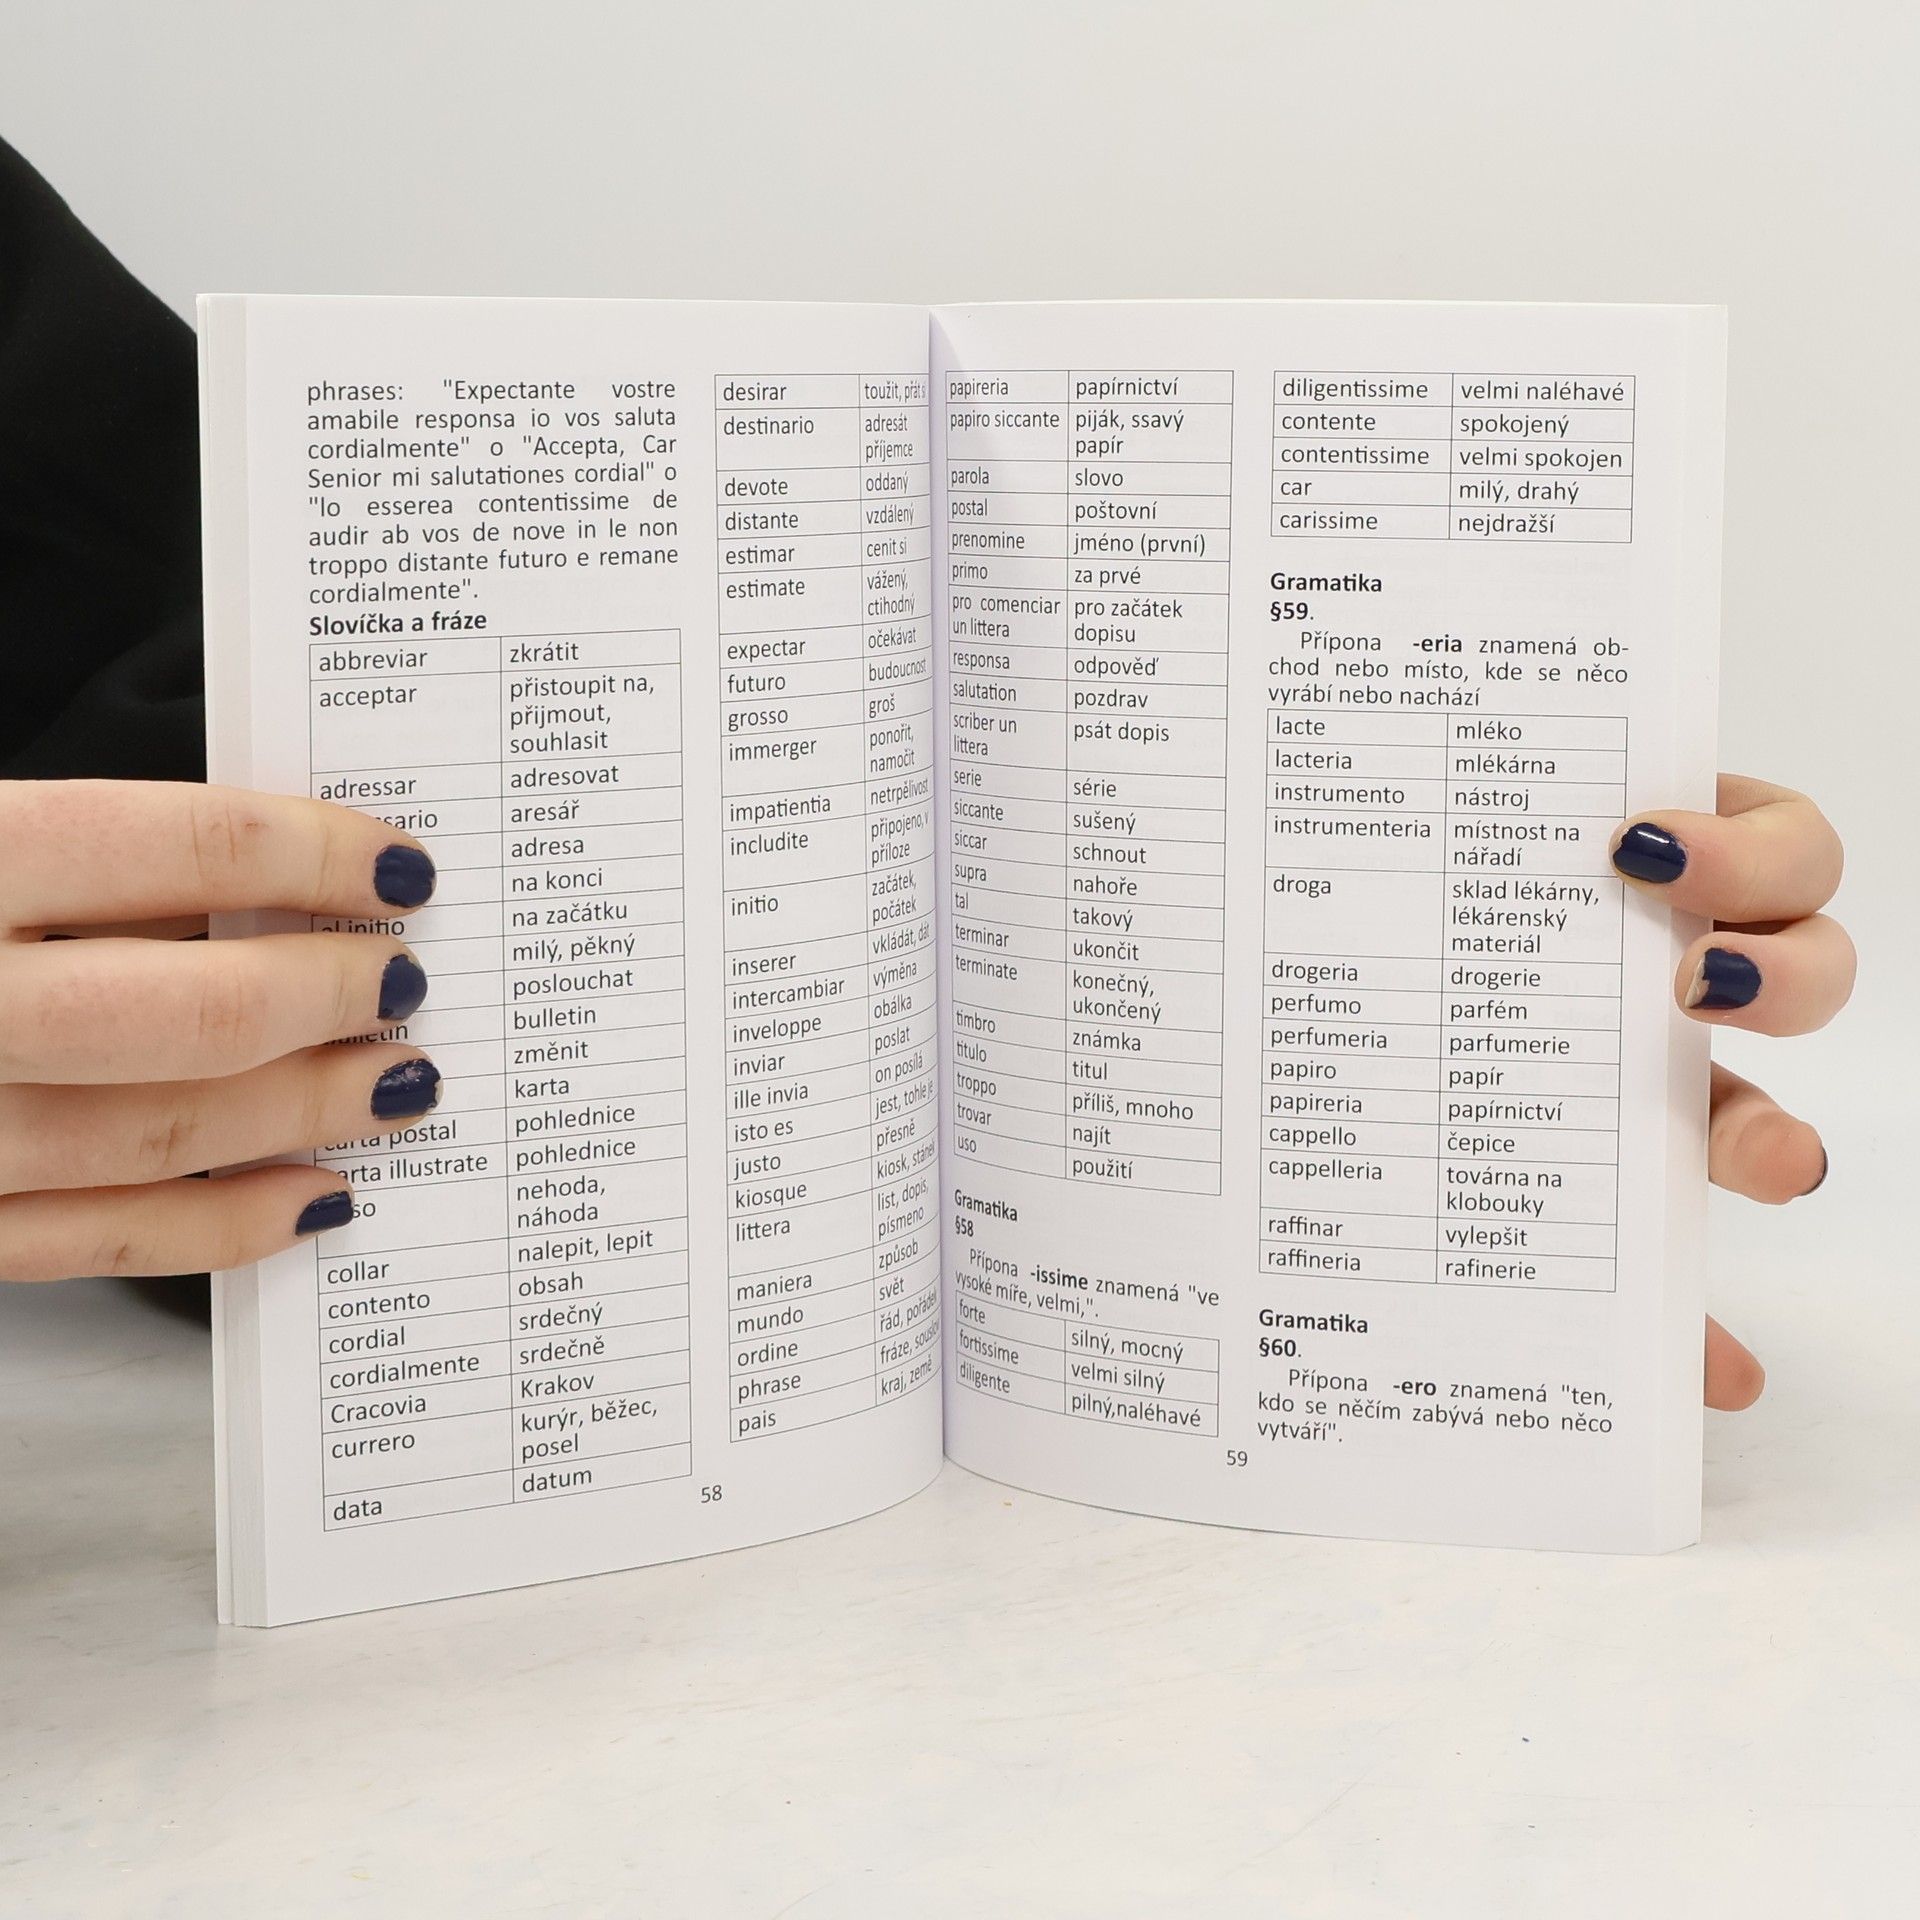 phrases: "Expectante vostre
amabile responsa io vos saluta
cordialmente" o "Accepta, Car
Senior mi salutationes cordial" o
"Io esserea contentissime de
audir ab vos de nove in le non
troppo distante futuro e remane
cordialmente".
Slovíčka a fráze
abbreviar zkrátit
acceptar přistoupit na,
přijmout,
souhlasit
adressar adresovat
aresář
adresa
na konci
al initio na začátku
milý, pěkný
poslouchat
bulletin bulletin
změnit
karta
carta postal pohlednice
carta illustrate pohlednice
nehoda,
náhoda
collar nalepit, lepit
contento obsah
cordial srdečný
cordialmente srdečně
Cracovia Krakov
currero kurýr, běžec,
posel
data datum
desirar toužit, přát si
destinario adresát
příjemce
devote oddaný
distante vzdálený
estimar cenit si
estimate vážený,
ctihodný
expectar očekávat
futuro budoucnost
grosso groš
immerger ponořit,
namočit
impatientia netrpělivost
includite připojeno, v
příloze
initio začátek,
počátek
inserer vkládát, dát
intercambiar výměna
inveloppe obálka
inviar poslat
ille invia on posílá
isto es jest, tohle je
justo přesně
kiosque kiosk, stánek
littera list, dopis,
písmeno
maniera způsob
mundo svět
ordine řád, pořádek
phrase fráze, sousloví
pais kraj, země
58
papireria papírnictví
papiro siccante piják, ssavý
papír
parola slovo
postal poštovní
prenomine jméno (první)
primo za prvé
pro comenciar pro začátek
un littera dopisu
responsa odpověď
salutation pozdrav
scriber un psát dopis
littera
serie série
siccante sušený
siccar schnout
supra nahoře
tal takový
terminar ukončit
terminate konečný,
ukončený
timbro známka
titulo titul
troppo příliš, mnoho
trovar najít
uso použití
Gramatika
§58
Přípona -issime znamená "ve
vysoké míře, velmi,".
forte silný, mocný
fortissime velmi silný
diligente pilný,naléhavé
diligentissime velmi naléhavé
contente spokojený
contentissime velmi spokojen
car milý, drahý
carissime nejdražší
Gramatika
§59.
Přípona -eria znamená ob-
chod nebo místo, kde se něco
vyrábí nebo nachází
lacte mléko
lacteria mlékárna
instrumento nástroj
instrumenteria místnost na
nářadí
droga sklad lékárny,
lékárenský
materiál
drogeria drogerie
perfumo parfém
perfumeria parfumerie
papiro papír
papireria papírnictví
cappello čepice
cappelleria továrna na
klobouky
raffinar vylepšit
raffineria rafinerie
Gramatika
§60.
Přípona -ero znamená "ten,
kdo se něčím zabývá nebo něco
vytváří".
59